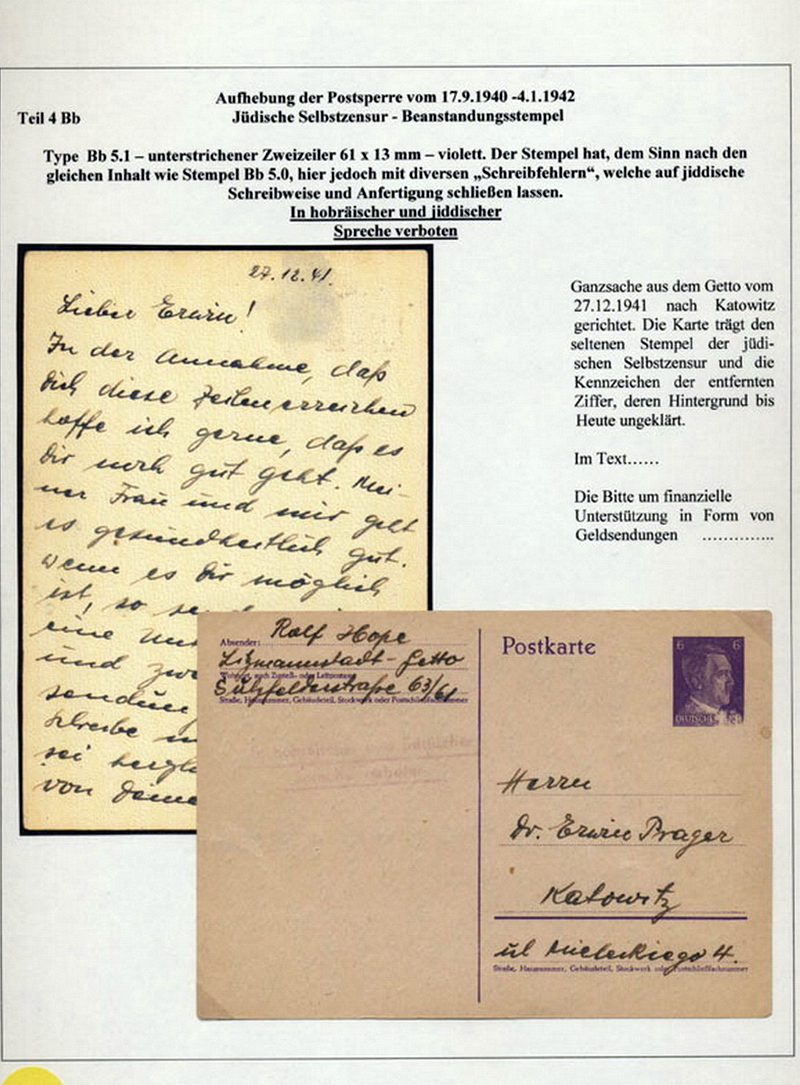 Aufhebung der Postsperre vom 17.9.1940 -4.1.1942
Teil 4 Bb
Jüdische Selbstzensur - Beanstandungsstempel
Type Bb 5.1 – unterstrichener Zweizeiler 61 x 13 mm – violett. Der Stempel hat, dem Sinn nach den
gleichen Inhalt wie Stempel Bb 5.0, hier jedoch mit diversen „Schreibfehlern“, welche auf jiddische
Schreibweise und Anfertigung schließen lassen.
In hobräischer und jiddischer
Spreche verboten
27.12.41.
Lieber Erwin!
In der Annahme, daß
Dich diese Zeilen erreichen
hoffe ich gerne, daß es
Dir noch gut geht. Mei-
ner Frau und mir geht
es gesundheitlich gut.
Wenn es Dir möglich
ist, so
eine
und
sendun
schreibe
sei
von Deine
Ganzsache aus dem Getto vom
27.12.1941 nach Katowitz
gerichtet. Die Karte trägt den
seltenen Stempel der jüdi-
schen Selbstzensur und die
Kennzeichen der entfernten
Ziffer, deren Hintergrund bis
Heute ungeklärt.
Im Text......
Die Bitte um finanzielle
Unterstützung in Form von
Geldsendungen ..............
Absender: Rolf Hope
Litzmannstadt-Getto
Wohnort, auch Zustell- oder Leitpostamt
Sulzfelderstraße 63/61
Straße, Hausnummer, Gebäudeteil, Stockwerk oder Postschließfachnummer
hobräischer und jiddischer
Spreche verboten
Postkarte
6 6
DEUTSCHES
Herrn
Dr. Erwin Prager
Katowitz
ul Mieleckiego 4.
Straße, Hausnummer, Gebäudeteil, Stockwerk oder Postschließfachnummer